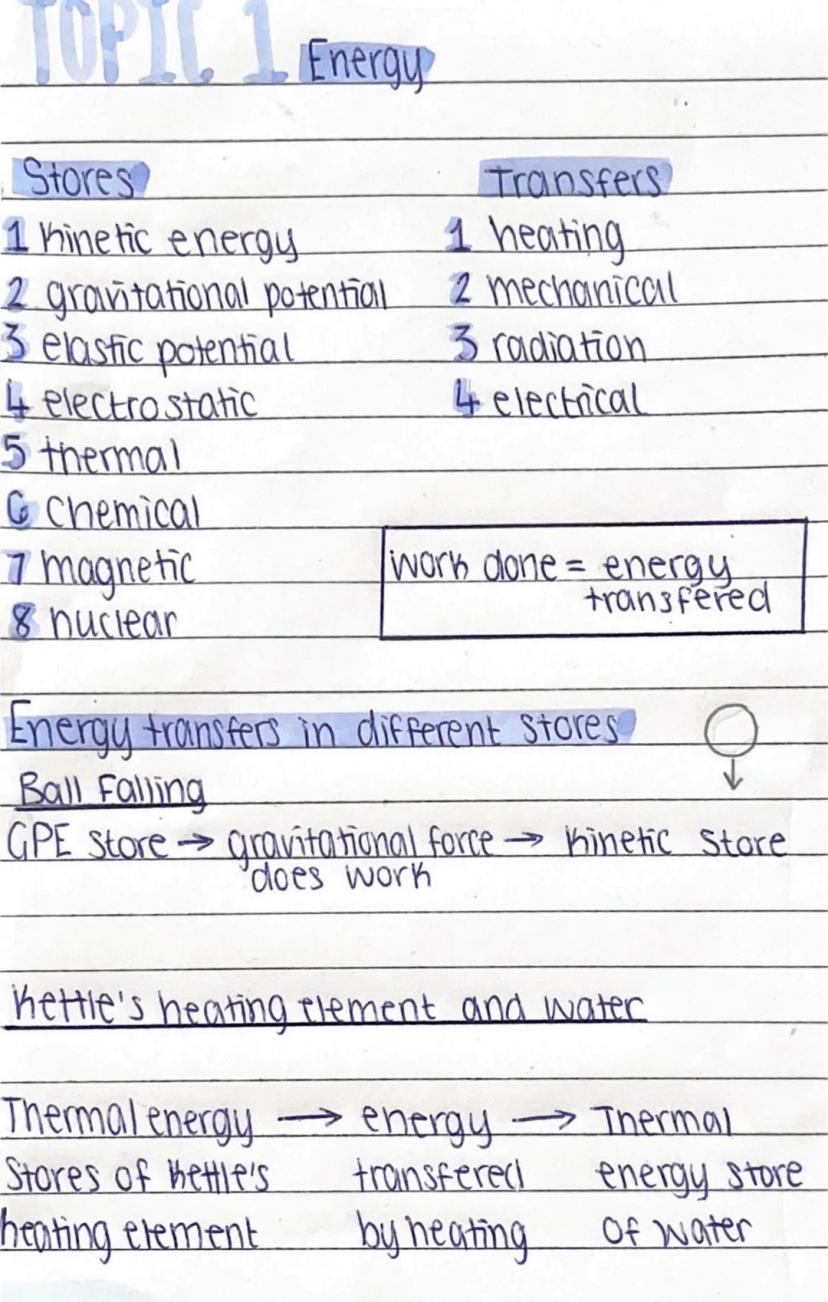 TOPIC 1 Energy
Stores
1 kinetic energy
2 gravitational potential
3 elastic potential
4 electrostatic
5 thermal
6 chemical
7 magnetic
8 nuclear
Transfers
1 heating
2 mechanical
3 radiation
4 electrical
work done = energy
transfered
Energy transfers in different stores
Ball Falling
GPE store → gravitational force → kinetic store
does work
kettle's heating element and water
Thermal energy → energy → Thermal
stores of kettle's transfered energy store
heating element by heating of water